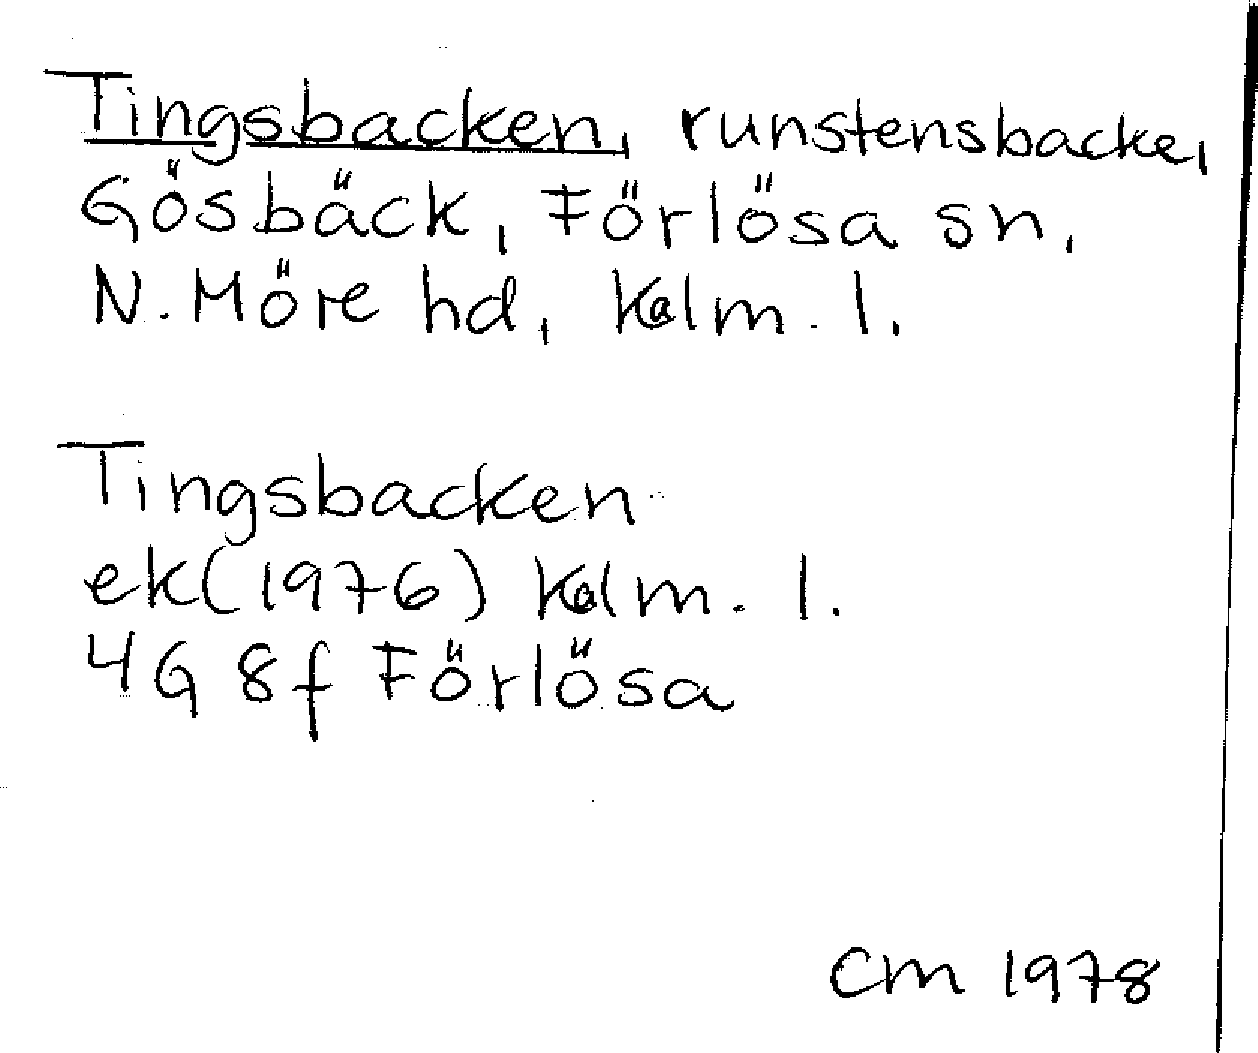 Tingsbacken, runstensbacke,
Gösbäck, Förlösa sn,
N. Möre hd, Kalm. l.
Tingsbacken
ek(1976) Kalm. l.
4G 8f Förlösa
CM 1978